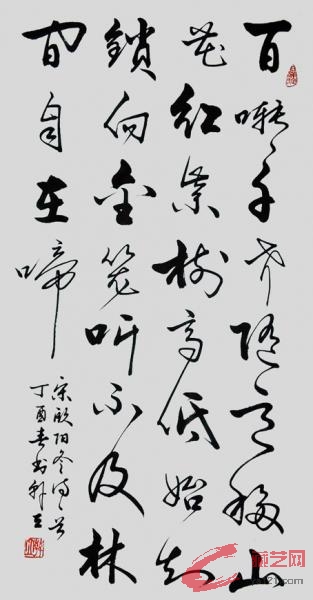 百啭千声随意移山
花红紫树高低始知
鎖向金笼听不及林
间自在啼
宋欧阳修诗
丁酉春书